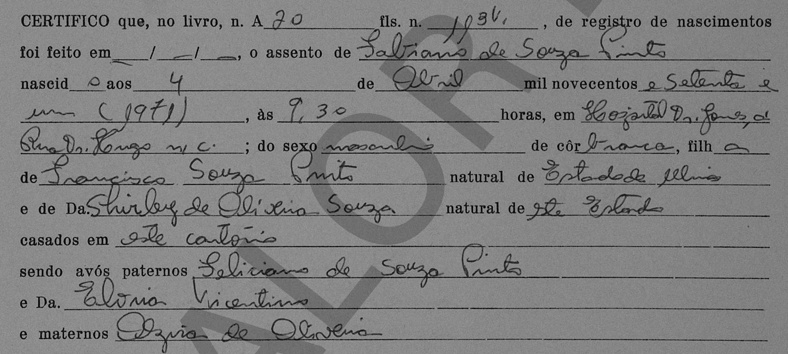 CERTIFICO que, no livro, n. A 20 fls. n. 113v. , de registro de nascimentos
foi feito em / / , o assento de Fabiano de Souza Pinto
nascid o aos 4 de Abril mil novecentos e setenta e
um (1971) , às 9,30 horas, em Hospital Dr. Jones, a
Rua Dr. Hugo n/c. ; do sexo masculino de côr branca, filh o
de Francisco Souza Pinto natural de Estado de Minas
e de Da. Shirley de Oliveira Souza natural de este Estado
casados em este cartório
sendo avós paternos Feliciano de Souza Pinto
e Da. Vicentina
e maternos de Oliveira
VALOR